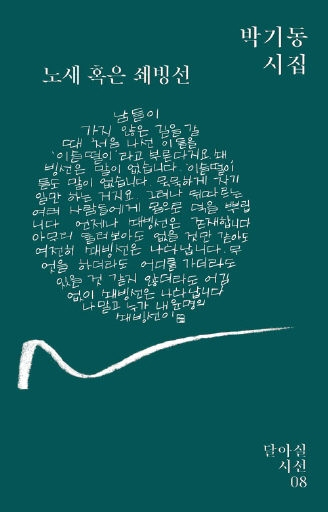 박기동
시집
노새 혹은 쇄빙선
남들이
가지 않은 길을 갈
때 처음 나선 이들을
'이들떨이'라고 부른다지요. 쇄
빙선은 말이 없습니다. '이들떨이'
들도 말이 없습니다. 묵묵하게 자기
일만 하는 거지요. 그러나 뒤따르는
여러 사람들에게 몸으로 덕을 뿌립
니다. 언제나 쇄빙선은 존재합니다
아무리 둘러보아도 없을 것만 같아도
여전히 쇄빙선은 나타납니다. 무
엇을 하더라도 어디를 가더라도
있을 것 같지 않더라도 어김
없이 쇄빙선은 나타납니다
나 말고 누가 내
쇄빙선이
달아실
시선
08